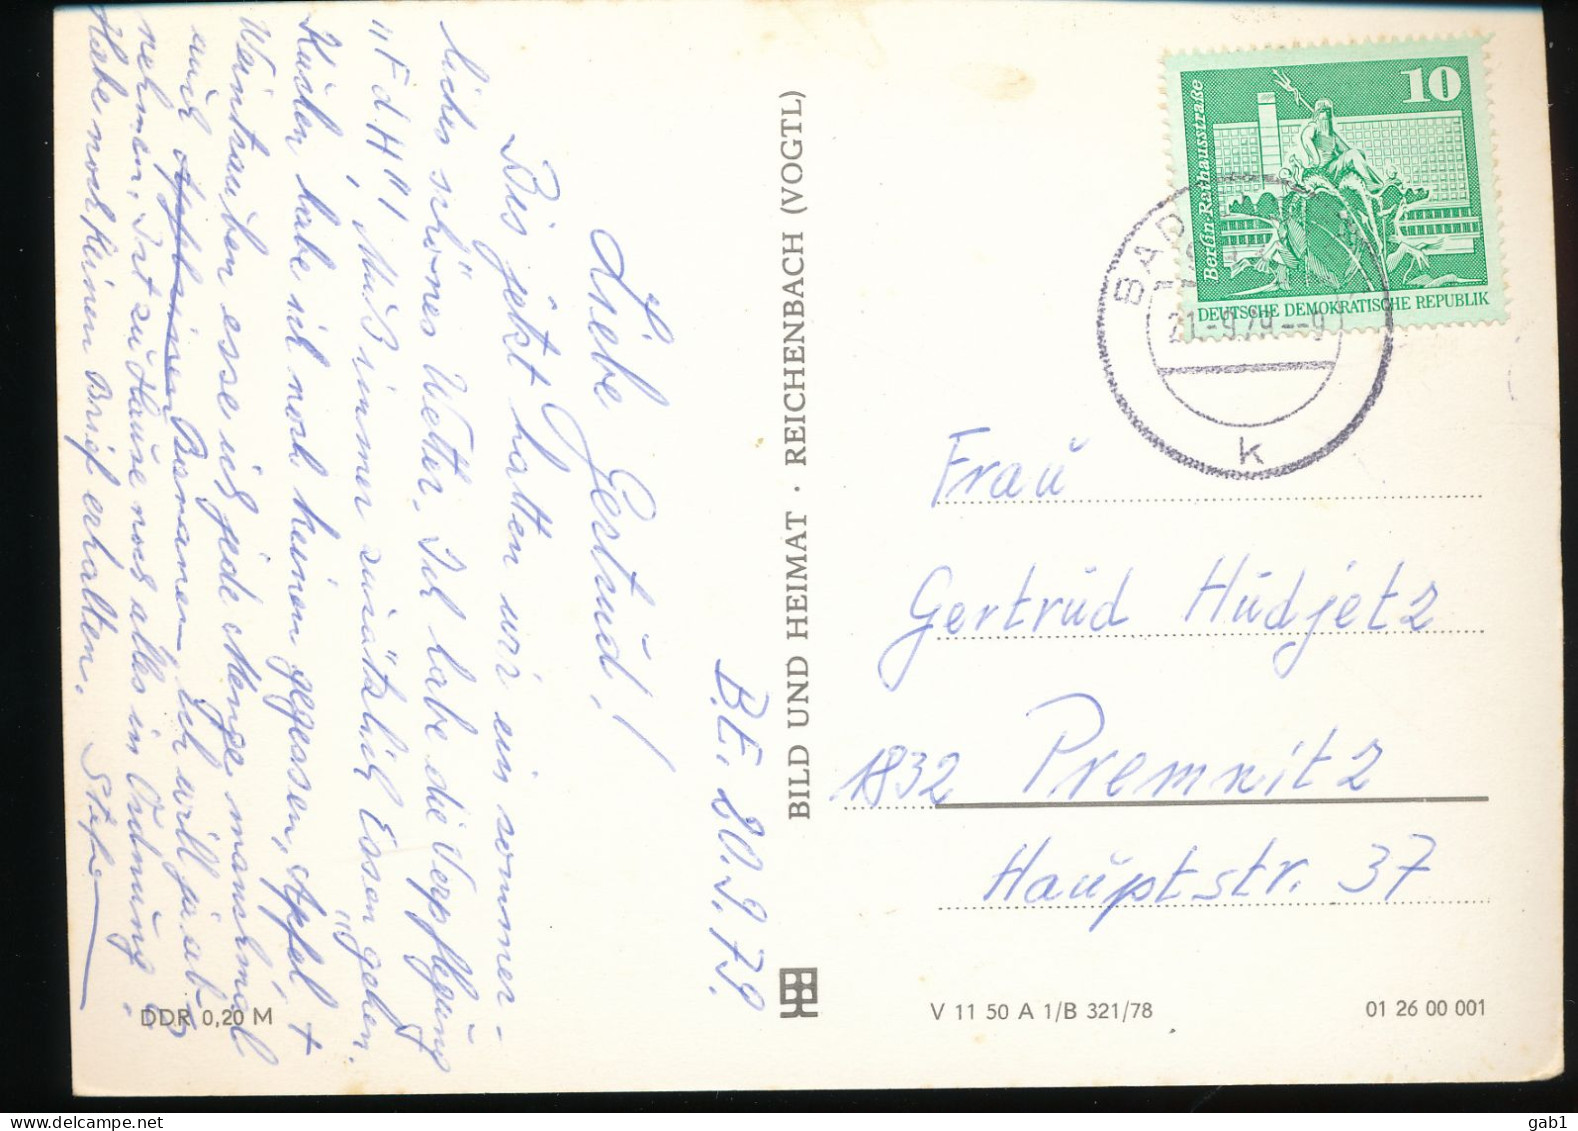 B.E. 20.9.79.
Liebe Gertrud!
Bis jetzt hatten wir ein sommer-
liches schönes Wetter. Ich habe die Verpflegung
"FdH", Muß immer zusätzlich Essen gehen.
Kuchen habe ich noch keinen gegessen, Äpfel +
Weintrauben esse ich jede Menge, manchmal
auch Bananen Ich will ja ab-
nehmen. Ist zu Hause noch alles in Ordnung?
Habe noch keinen Brief erhalten.
BILD UND HEIMAT · REICHENBACH (VOGTL)
DDR 0,20 M
10
Berlin-Rathausstraße
DEUTSCHE DEMOKRATISCHE REPUBLIK
BAD
21.-9.79.--9
k
Frau
Gertrud Hudjetz
1832 Premnitz
Hauptstr. 37
V 11 50 A 1/B 321/78
01 26 00 001
www.delcampe.net
gab1